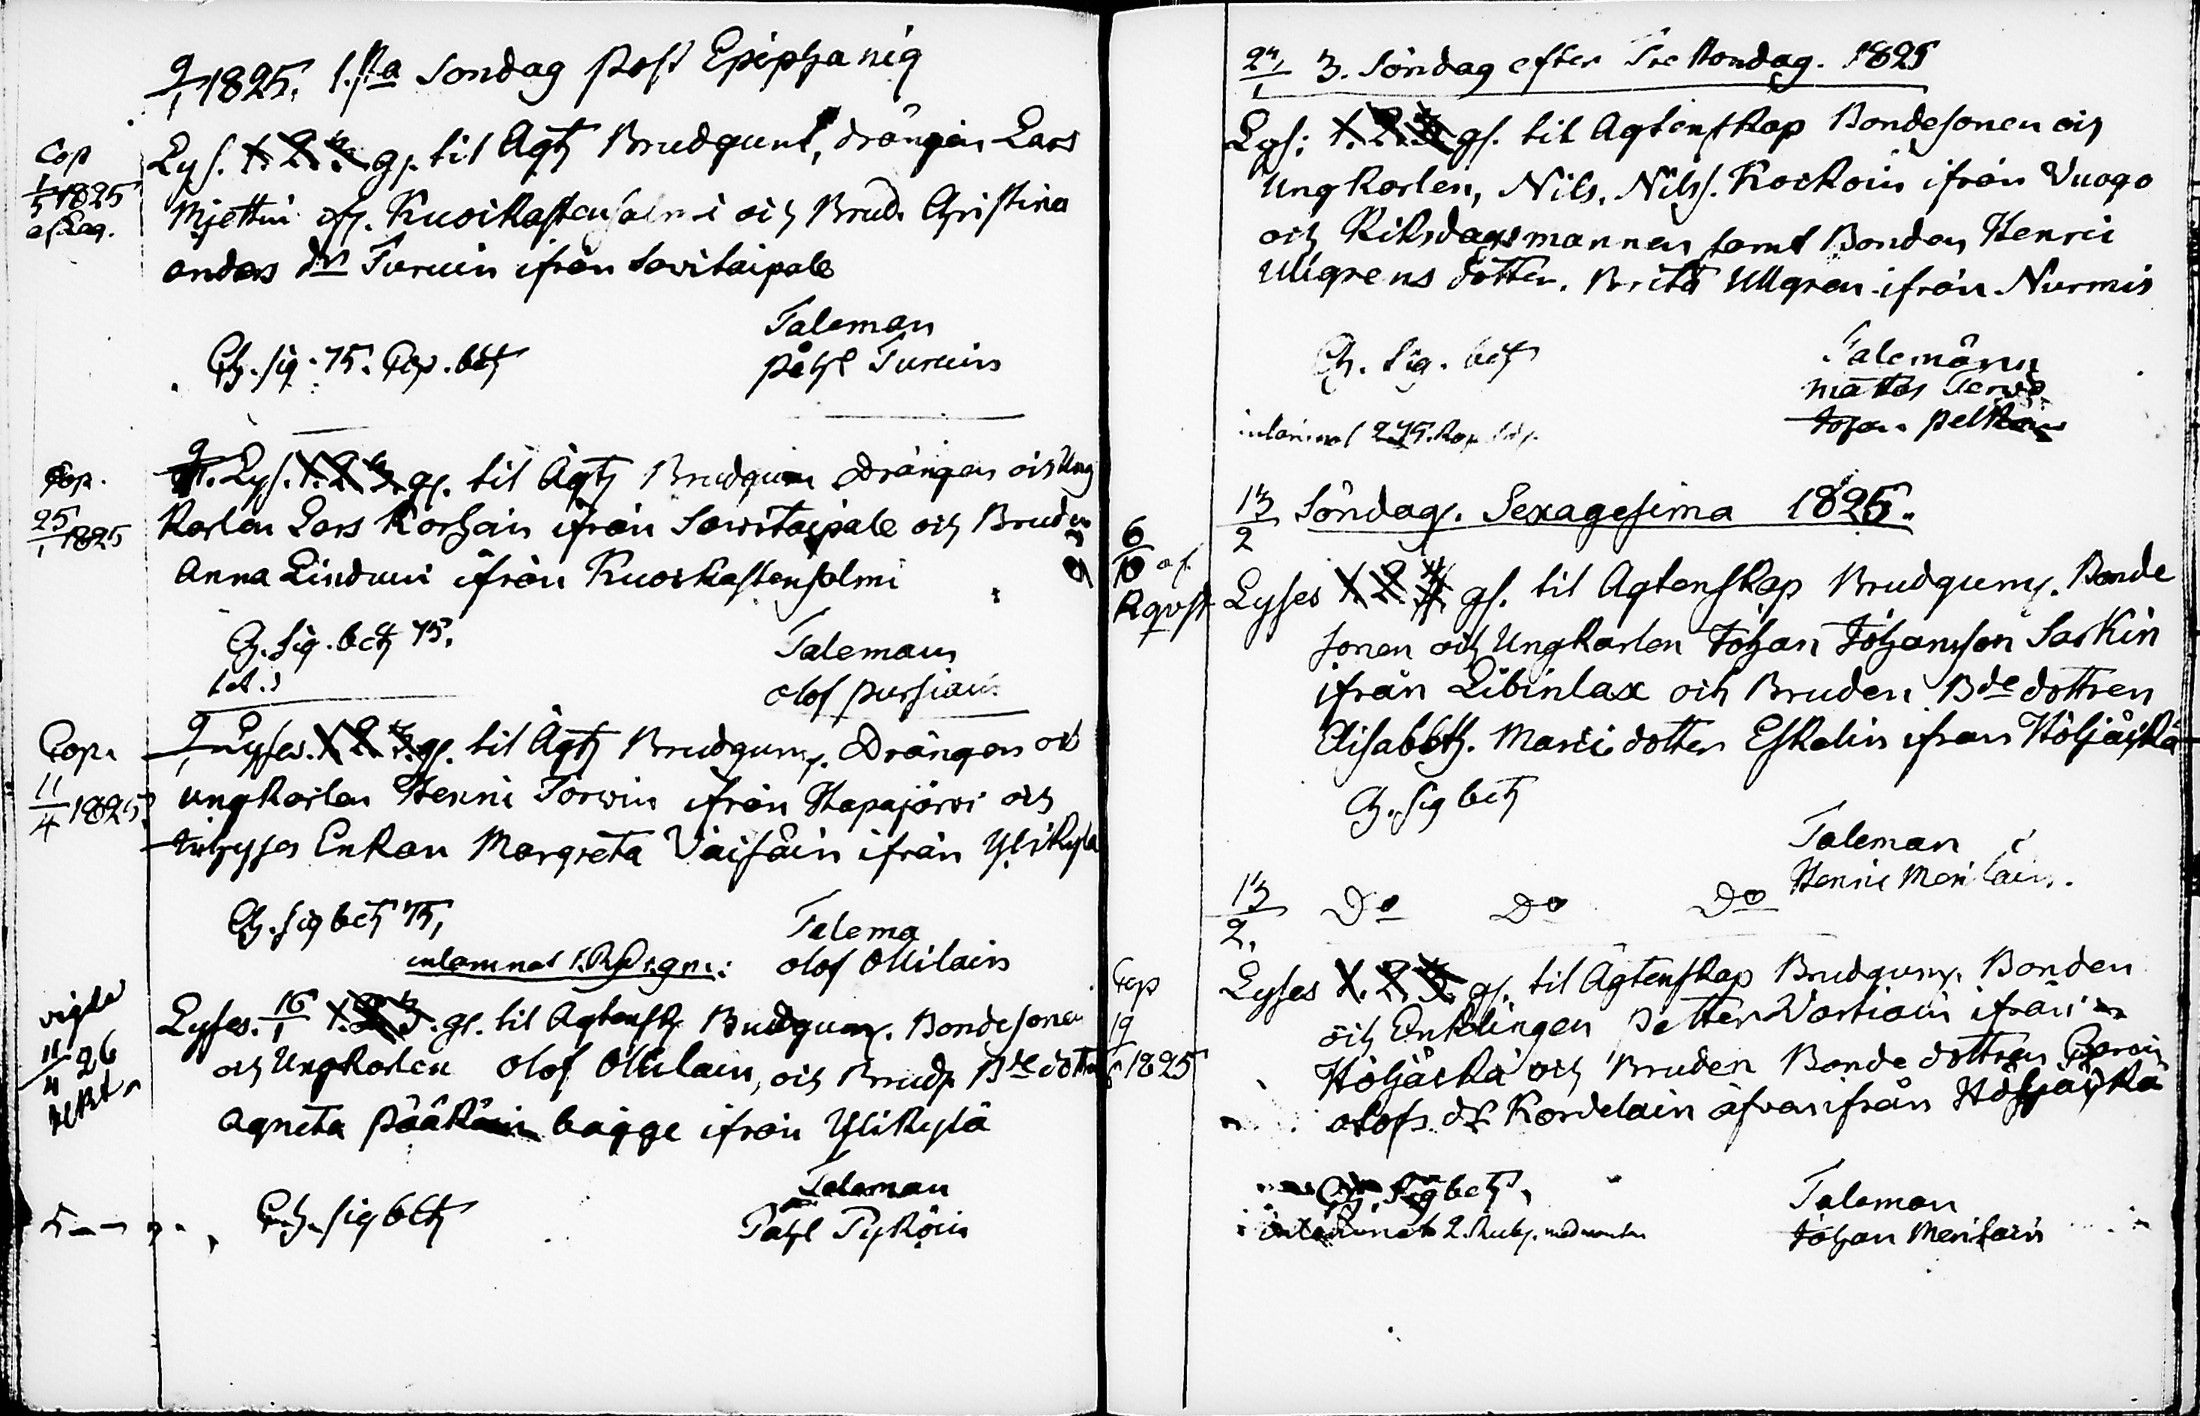 9/1 1825. 1.sta Söndag post Epiphanig
Cop
1/5 1825
Lys. 1. 2. 3. gs. til Ägtj Brudgum, drängen Lars
Mjettin ifr. Kuoikastensalmi och Brud. Christina
anders dr Turuin ifrån Savitaipale
Taleman
Påhl Turuin
Ch. sig. 75. Cop. betj
Cop.
25/1 1825
9/1. Lys. 1. 2. 3. gs. til Ägtj Brudgum Drängen och Ung
Karlen Lars Korhain ifrån Savitaipale och Bruden
Anna Linduin ifrån Kuoikastensalmi
Ch. sig. betj 75.
Taleman
olof pursiain
Cop.
11/4 1825
9/1 Lyses. 1. 2. 3. gs. til Ägtj Brudgum. Drängen och
ungkarlen Henric Torvin ifrån Hapajärvi och
Enkan Margreta Väisäin ifrån Ylikylä
Ch. sig betj 75,
Talema
inlämnat olof Ollilain
vigde
11/4 26
Lyses. 16/1 1. 2. 3. gs. til Agtensk. Brudgum. Bondesonen
och Ungkarlen olof Ollilain, och Brud. Bde dotter
Agneta Pääkäin bagge ifrån Ylikylä
Taleman
Ch. sig betj
Påhl Pykäin
24/1 3. Söndag efter Tre Kondag. 1825
Lys: 1. 2. 3. gs. til Agtenskap Bondesonen och
Ungkarlen, Nils. Nilss. Koskoin ifrån Vuogo
och Riksdagsmannen samt Bonden Henric
Ullgrens dotter. Brita Ullgren ifrån Nurmis
Ch. Sig. betj
Talemänn
mattes Tervo
Johan pelkoin
inlämnat
13/2 Söndag. Sexagesima 1825.
6/10 af.
Agvst
Lyses 1. 2. 3. gs. til Agtenskap Brudgum. Bonde
sonen och Ungkarlen Johan Johansson Saskin
ifrån Libinlax och Bruden Bde dottren
Elisabeth. Marci dotter Eskelin ifrån Höljäskä
Ch. sig betj
Taleman
Henric Meriläin.
13/2. Do Do Do
Cop
19/6 1825
Lyses 1. 2. 3. gs. til Ägtenskap Brudgum. Bonden
och Enklingen Petter Vartiain ifrån
Höljäskä och Bruden Bonde dottren
olofs dr Kordelain äfvan ifrån Höljäskä
Ch. Sig betj,
Taleman
Johan Meriläin
inlämnat 2. Rub.